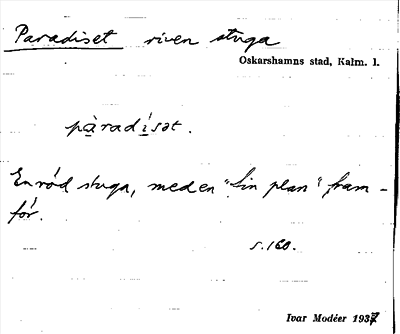 Paradiset riven stuga
Oskarshamns stad, Kalm. l.
pàradísət.
En röd stuga, med en "fin plan" fram-
för.
s. 160.
Ivar Modéer 1937